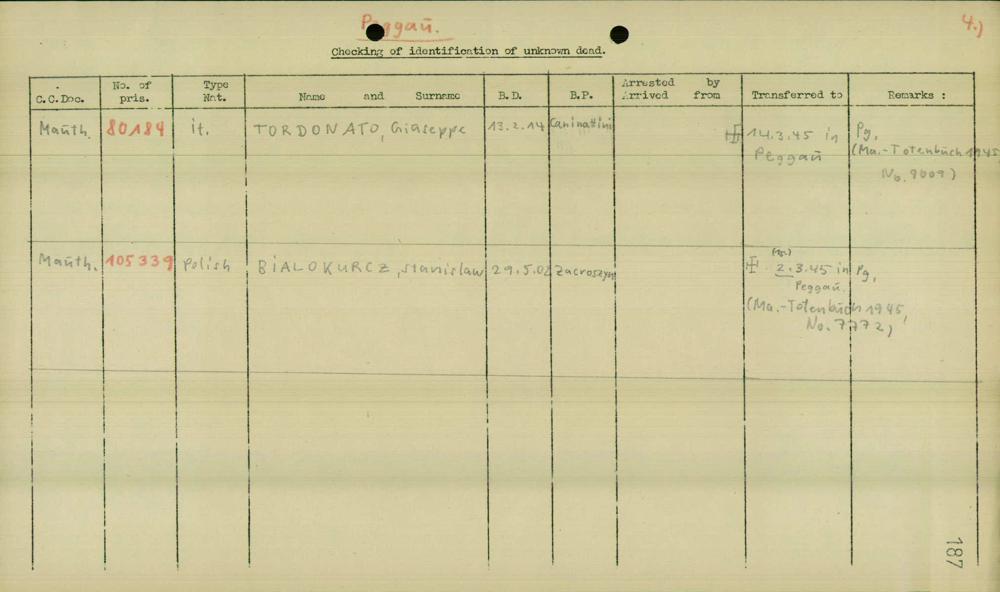 Peggaũ.
4.)
Checking of identification of unknown dead.
C.C.Doc.
No. of pris.
Type Nat.
Name and Surname
B.D.
B.P.
Arrested by
Arrived from
Transferred to
Remarks :
Maũth. 80184 it. TORDONATO, Giuseppe 13.2.14 Caninattini 14.3.45 in Pg,
Peggaũ (Ma.-Totenbũch 1945
No. 9009)
Maũth. 105339 Polish BIALOKURCZ, Stanislaw 29.5.02 Zacroszym 2.3.45 in Pg,
Peggaũ.
(Ma.-Totenbũch 1945,
No. 7772)
187